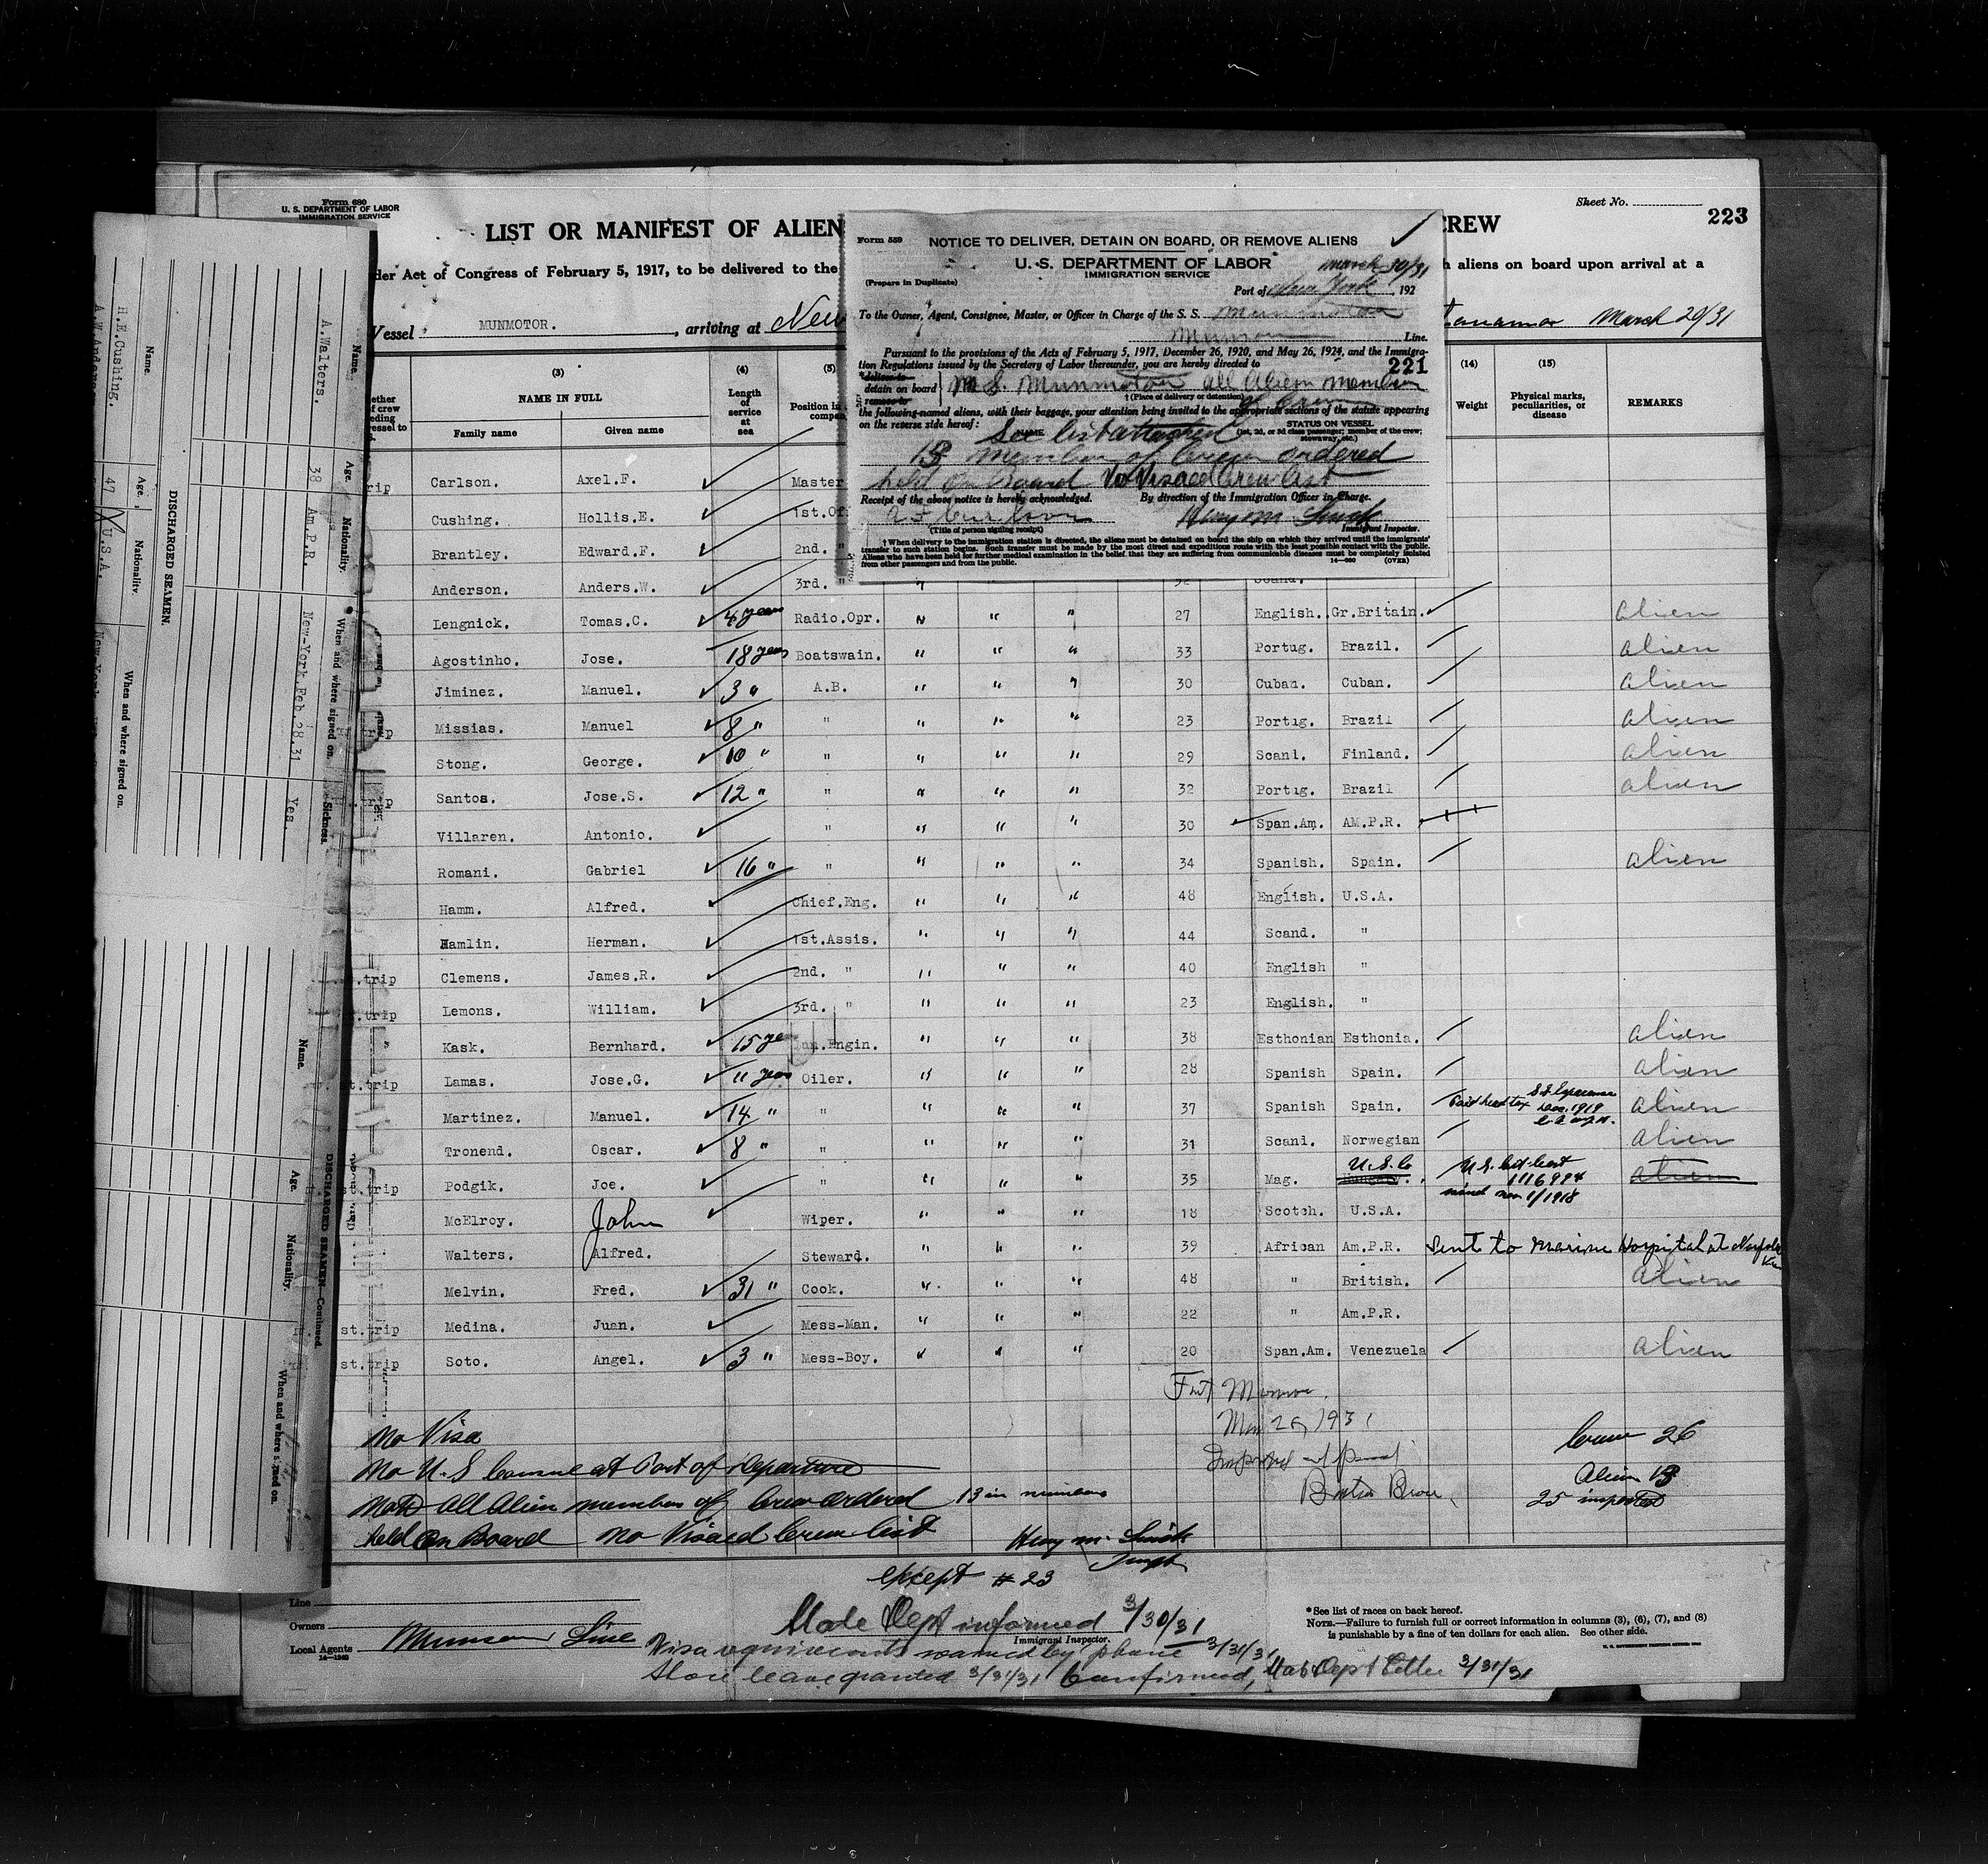 Form 680
U. S. DEPARTMENT OF LABOR
IMMIGRATION SERVICE
Sheet No.
223
LIST OR MANIFEST OF ALIEN
CREW
der Act of Congress of February 5, 1917, to be delivered to the
h aliens on board upon arrival at a
Vessel MUNMOTOR. , arriving at New
March 20/31
Form 559
NOTICE TO DELIVER, DETAIN ON BOARD, OR REMOVE ALIENS
U. S. DEPARTMENT OF LABOR
IMMIGRATION SERVICE
(Prepare in Duplicate)
March 30/31
Port of New York , 192
To the Owner, Agent, Consignee, Master, or Officer in Charge of the S. S. Munmotor
Munson Line.
Pursuant to the provisions of the Acts of February 5, 1917, December 26, 1920, and May 26, 1924, and the Immigra-
tion Regulations issued by the Secretary of Labor thereunder, you are hereby directed to 221
*deliver to
detain on board M S. Munmotor all Alien members
remove to
†(Place of delivery or detention) of Crew
the following-named aliens, with their baggage, your attention being invited to the appropriate sections of the statute appearing
on the reverse side hereof:
NAME STATUS ON VESSEL
(1st, 2d, or 3d class passenger; member of the crew;
stowaway, etc.)
See list attached
13 members of Crew ordered
held on Board No Visaed Crew list
Receipt of the above notice is hereby acknowledged. By direction of the Immigration Officer in Charge.
Henry M. Smith
(Title of person signing receipt) Immigrant Inspector.
†When delivery to the immigration station is directed, the aliens must be detained on board the ship on which they arrived until the immigrants'
transfer to such station begins. Such transfer must be made by the most direct and expeditious route with the least possible contact with the public.
Aliens who have been held for further medical examination in the belief that they are suffering from communicable disease must be completely isolated
from other passengers and from the public. 14—560 (OVER)
(3) (4) (5) (14) (15)
NAME IN FULL Length of service at sea Position in Weight Physical marks, peculiarities, or disease REMARKS
Family name Given name
Carlson. Axel.F. Master
Cushing. Hollis.E. 1st.Of
Brantley. Edward.F. 2nd. "
Anderson. Anders.W. 3rd. " Scand.
Lengnick. Tomas.C. 4 years Radio.Opr. " " " 27 English. Gr.Britain. alien
Agostinho. Jose. 18 years Boatswain. " " " 33 Portug. Brazil. alien
Jiminez. Manuel. 3 " A.B. " " " 30 Cuban. Cuban. alien
Missias. Manuel 8 " " " " " 23 Portug. Brazil alien
Stong. George. 10 " " " " " 29 Scani. Finland. alien
Santos. Jose.S. 12 " " " " " 32 Portug. Brazil alien
Villaren. Antonio. " " " " 30 Span.Am. AM.P.R.
Romani. Gabriel 16 " " " " " 34 Spanish. Spain. alien
Hamm. Alfred. Chief.Eng. " " " 48 English. U.S.A.
Hamlin. Herman. 1st.Assis. " " " 44 Scand. "
trip Clemens. James.R. 2nd. " " " " 40 English "
trip Lemons. William. 3rd. " " " " 23 English. "
" Kask. Bernhard. 15 years Jun.Engin. " " " 38 Esthonian Esthonia. alien
st.trip Lamas. Jose.G. 11 years Oiler. " " " 28 Spanish Spain. alien
Martinez. Manuel. 14 " " " " " 37 Spanish Spain. Paid head tax Dec. 1919 alien
Tronend. Oscar. 8 " " " " " 31 Scand. Norwegian alien
st.trip Podgik. Joe. " " " " 35 Mag. Hungary. U.S.C 1116994 Nov 1/1918 alien
McElroy. John Wiper. " " " 18 Scotch. U.S.A.
Walters. Alfred. Steward. " " " 39 African Am.P.R. Sent to Marine Hospital at Norfolk Va
Melvin. Fred. 31 " Cook. " " " 48 " British. alien
st.trip Medina. Juan. Mess-Man. " " " 22 " Am.P.R.
st.trip Soto. Angel. 3 " Mess-Boy. " " " 20 Span.Am. Venezuela alien
Fort Monroe.
1931
No Visa
Crew 26
No U.S Consul at Port of Departure
Alien 13
25 inspected
Note All Alien members of Crew ordered 13 in number
held on Board No Visaed Crew list Henry M. Smith
Inspt
except # 23
Line
Owners
Local Agents Munson Line
14—1240
State Dept informed 3/30/31
Immigrant Inspector.
Visa requirements waived by phone 3/31/31
Shore leave granted 3/31/31 Confirmed, State Dept Letter 3/31/31
*See list of races on back hereof.
NOTE.—Failure to furnish full or correct information in columns (3), (6), (7), and (8)
is punishable by a fine of ten dollars for each alien. See other side.
DISCHARGED SEAMEN.
Name. Age. Nationality. When and where signed on. Sickness.
A.Walters. 38 Am.P.R. New-York.Feb.28.31 Yes.
Name. Age. Nationality. When and where signed on.
H.E.Cushing. 47 U.S.A.
DISCHARGED SEAMEN—Continued.
Name. Age. Nationality. When and where signed on.